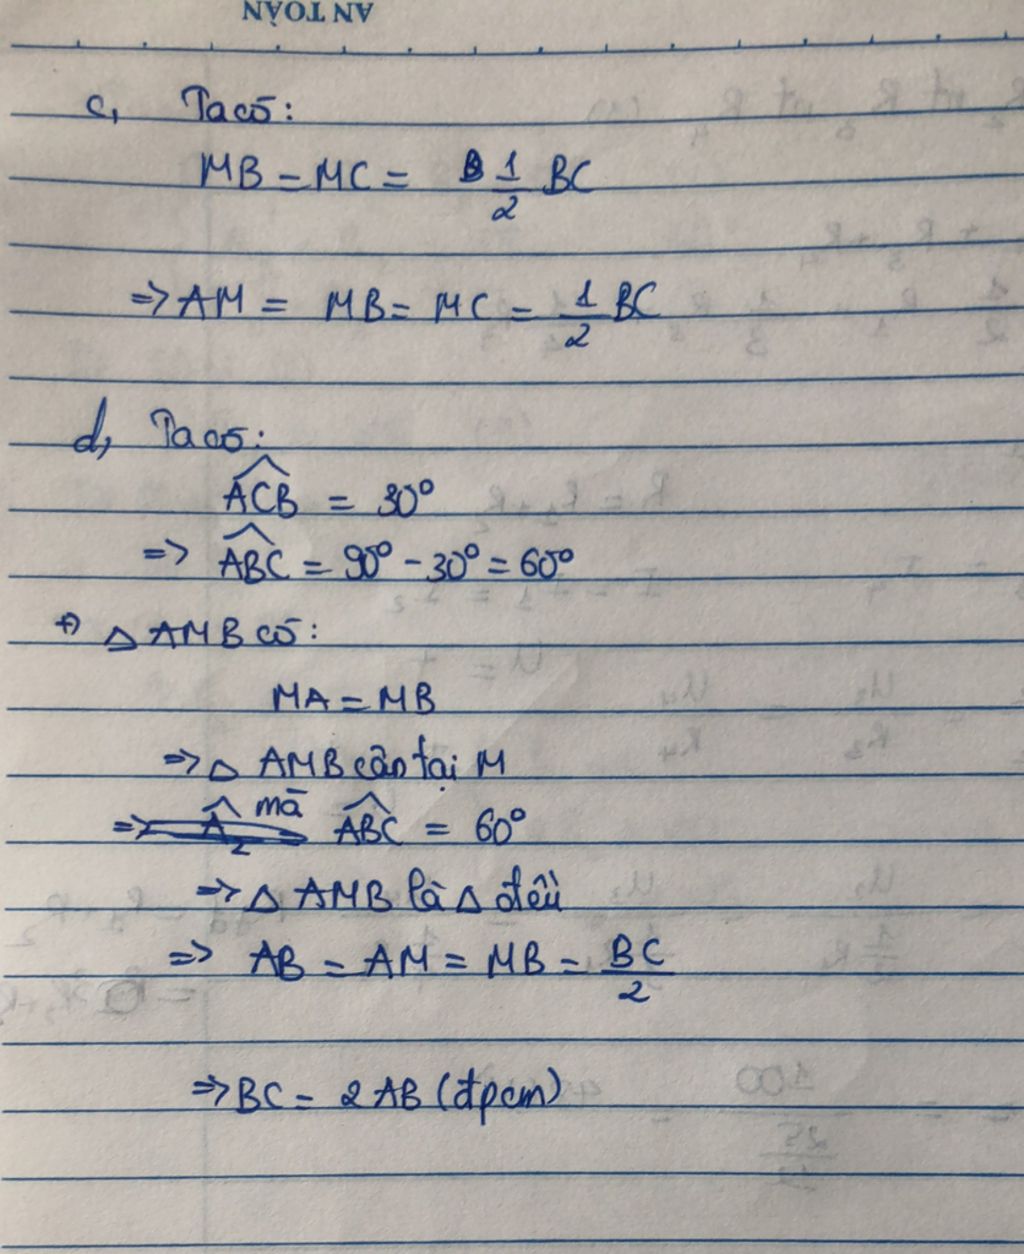 AN TOÀN
c, Ta có:
MB = MC = 1/2 BC
=> AM = MB = MC = 1/2 BC
d, Ta có:
\widehat{ACB} = 30°
=> \widehat{ABC} = 90° - 30° = 60°
+) △ AMB có:
MA = MB
=> △ AMB cân tại M
mà \widehat{ABC} = 60°
=> △ AMB là △ đều
=> AB = AM = MB = BC/2
=> BC = 2 AB (đpcm)